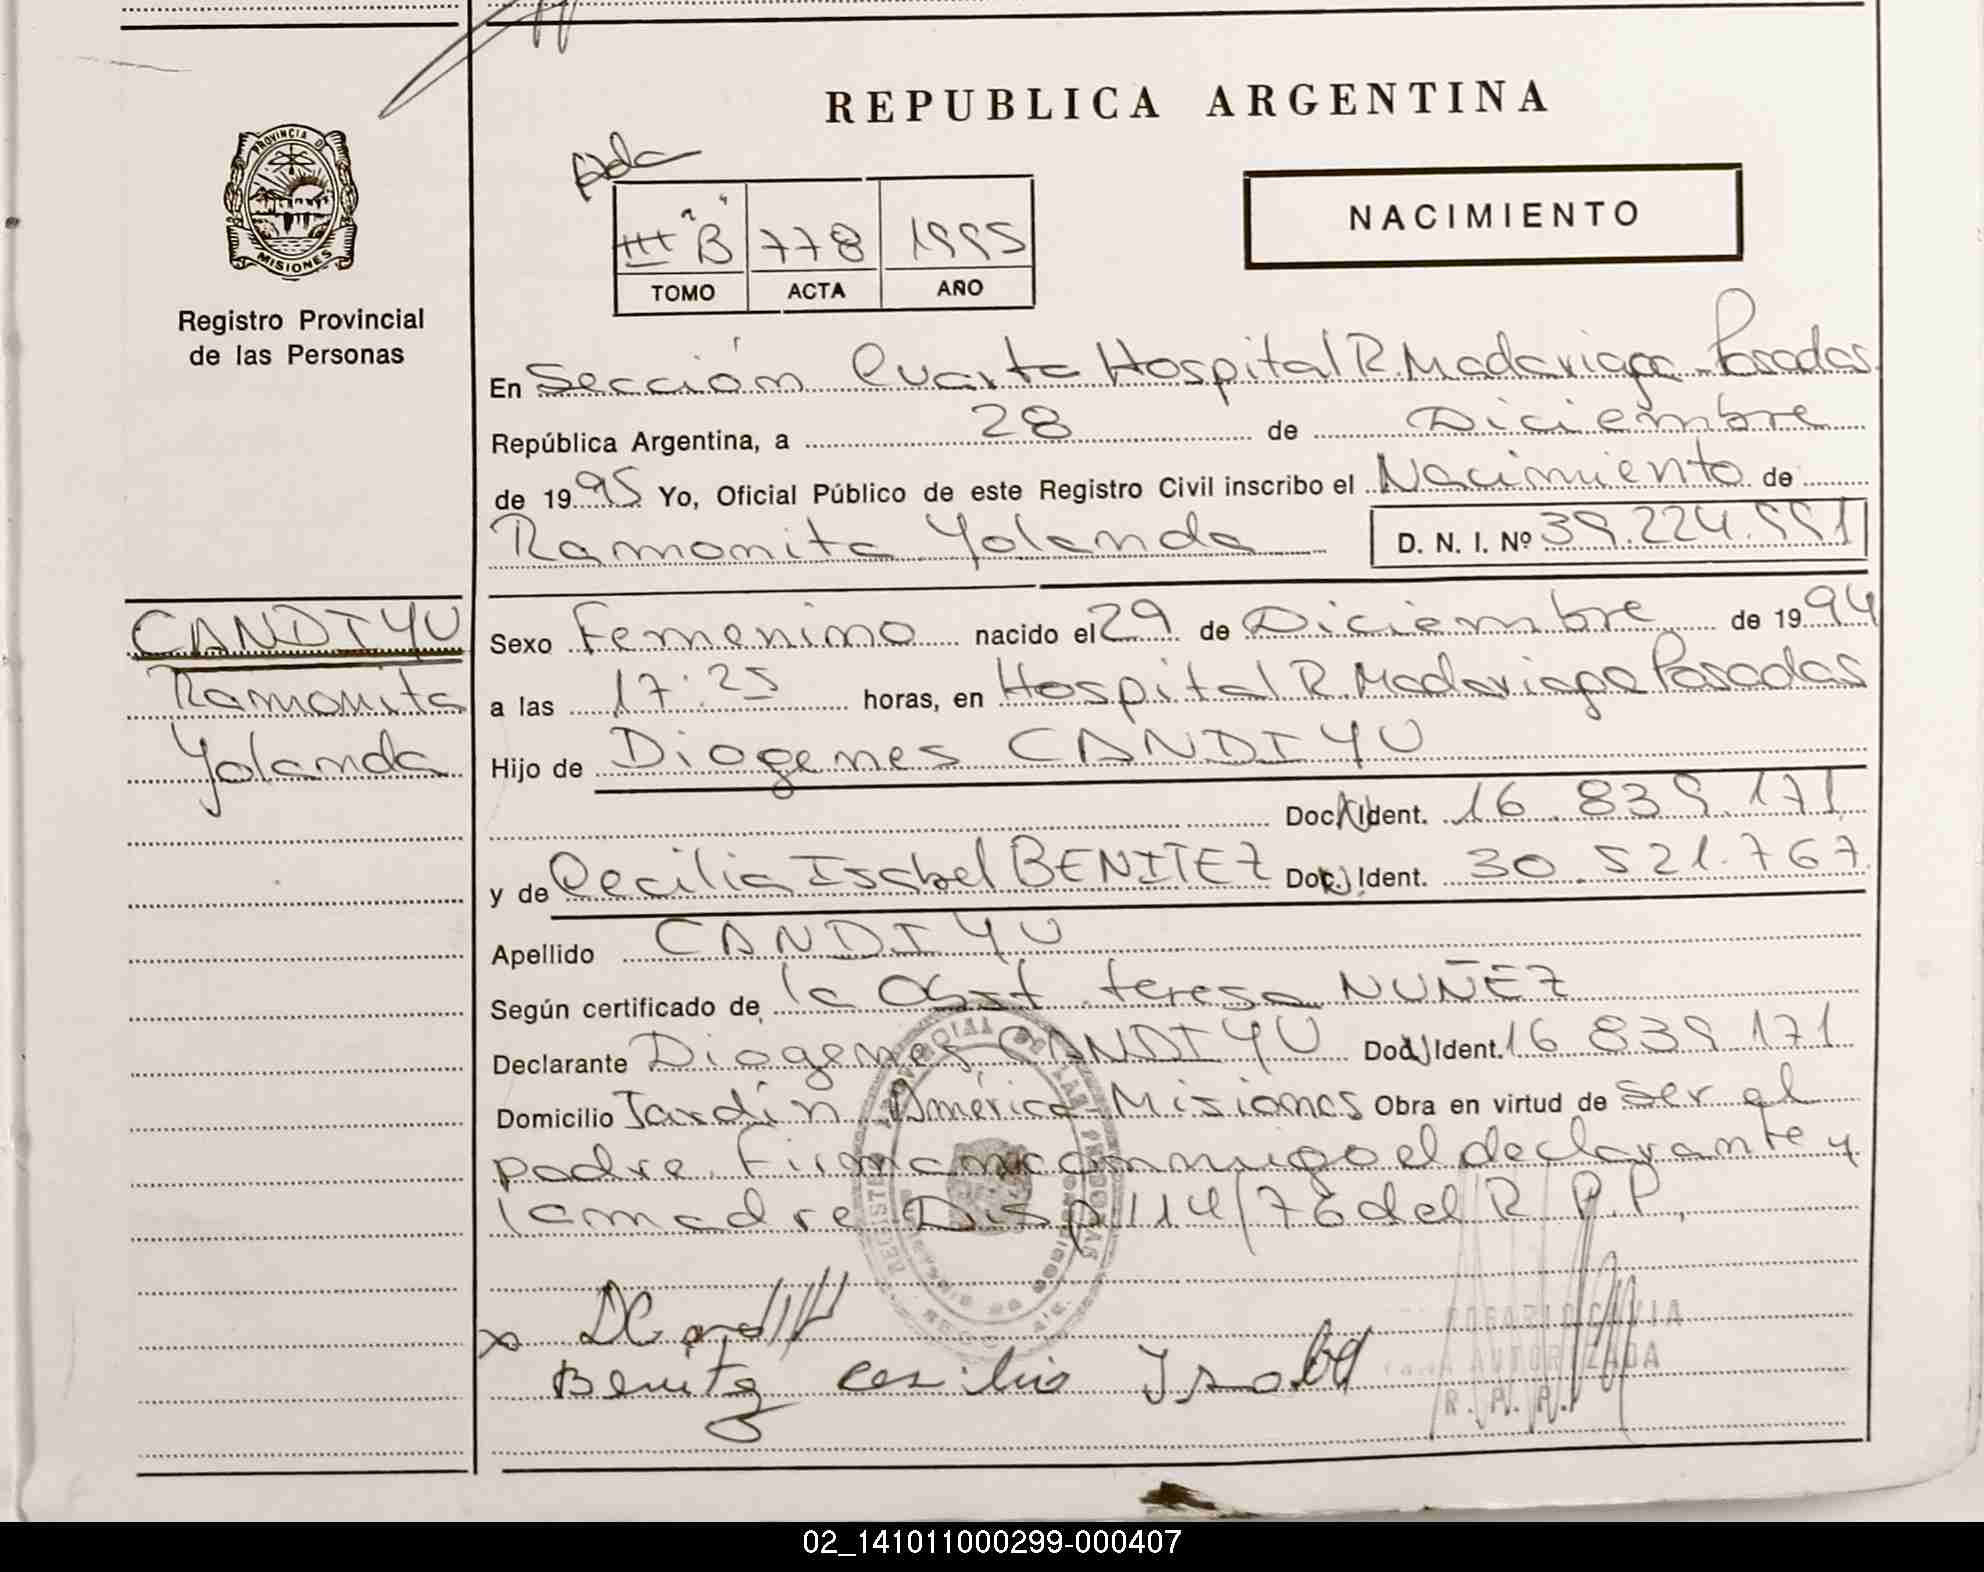 REPUBLICA ARGENTINA
PROVINCIA D
MISIONES
Registro Provincial
de las Personas
III "B" 778 1995
TOMO ACTA AÑO
NACIMIENTO
En Sección Cuarta Hospital R. Madariaga Posadas
República Argentina, a 28 de Diciembre
de 1995 Yo, Oficial Público de este Registro Civil inscribo el Nacimiento de
Ramonita Yolanda D. N. I. Nº 39.224.551
CANDIYU
Ramonita
Yolanda
Sexo Femenino nacido el 29 de Diciembre de 1994
a las 17:25 horas, en Hospital R. Madariaga Posadas
Hijo de Diogenes CANDIYU
Doc. Ident. 16.839.171
y de Cecilia Isabel BENITEZ Doc. Ident. 30.521.767
Apellido CANDIYU
Según certificado de la Obst. teresa NUÑEZ
Declarante Diogenes CANDIYU Doc. Ident. 16 839 171
Domicilio Jardín América - Misiones Obra en virtud de ser el
padre. Firman conmigo el declarante y
la madre Disp 114/76 del R. P.P.
Benitez Cesilia Isabel
AUTORIZADA
R. P. P.
02_141011000299-000407